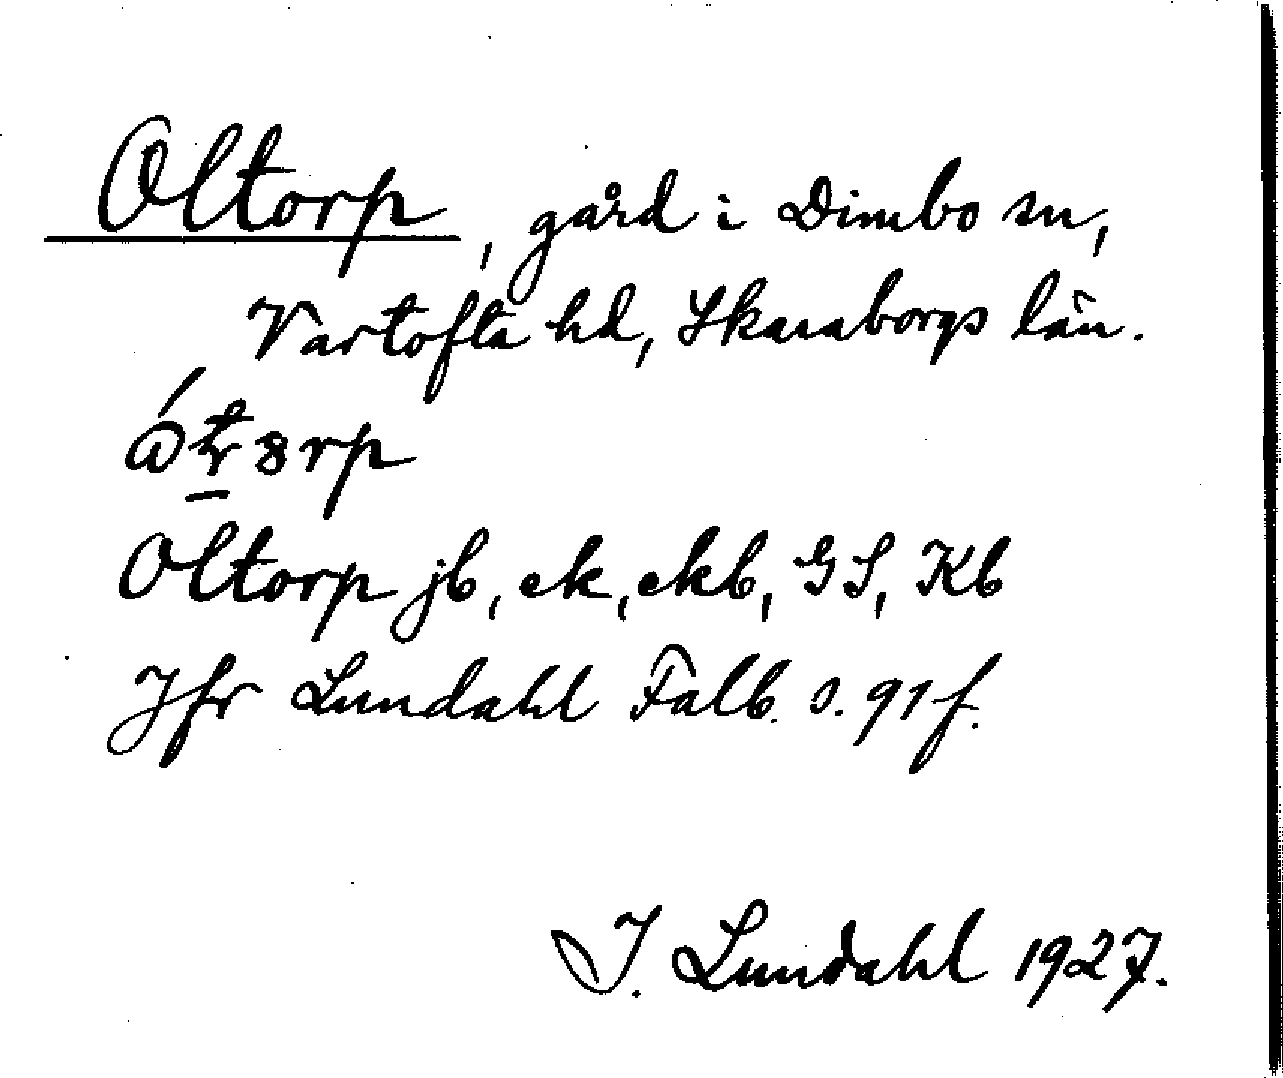 Oltorp, gård i Dimbo sn,
Vartofta hd, Skaraborgs län.
Oltorp jb, ek, ekb, GS, Kb
Jfr Lundahl Falb. s. 91 f.
I. Lundahl 1927.